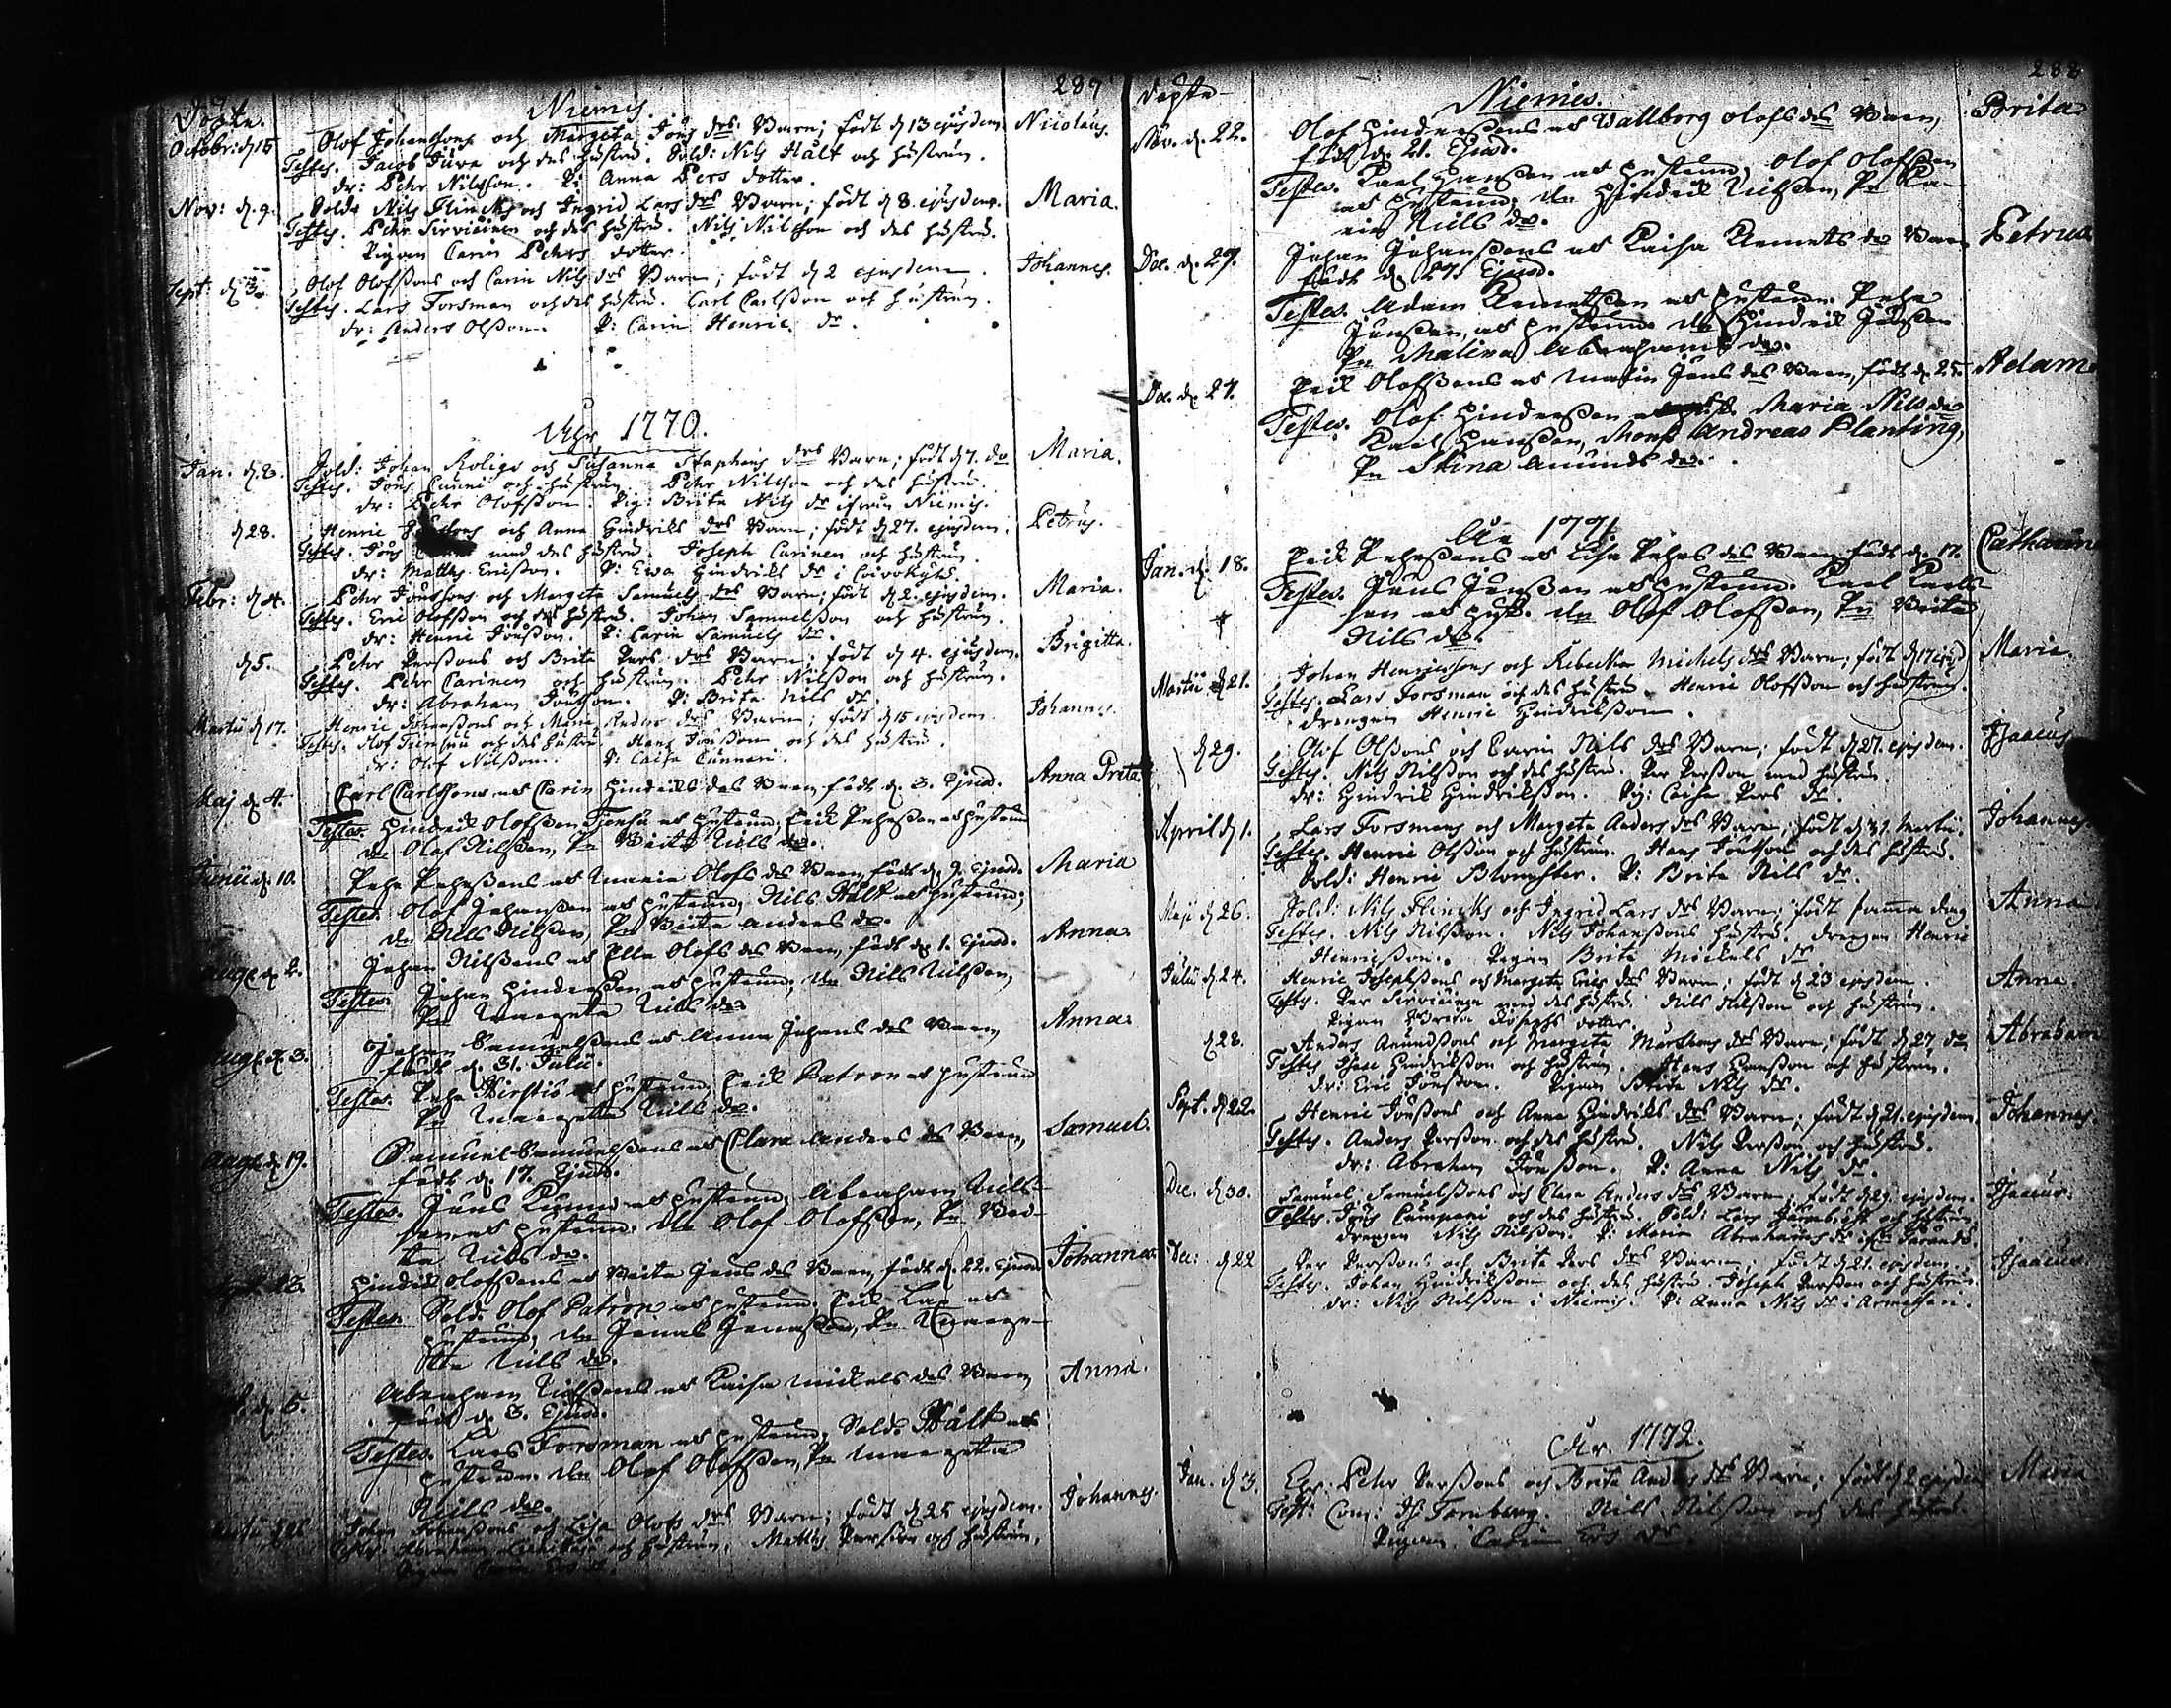 287
Döpte.
Niemis.
Octobr: d 15 Olof Johanssons och Margeta Jöns drs Barn; födt d 13 ejusdem. Nicolaus.
Testes. Jacob Jura och des hustru. Sold: Nils Hält och hustrun.
dr: Pehr Nilsson. P: Anna Pers dotter.
Nov: d. 9. Solda Nils Flincks och Ingrid Lars drs Barn; födt d 8. ejusdem. Maria.
Testes. Pehr Sirviöinen och des hustru. Nils Nilsson och des hustru.
Pigan Carin Pehrs dotter.
Sept: d 3. Olof Olofssons och Carin Nils drs Barn; födt d 2 ejusdem. Johannes.
Testes. Lars Forsman och des hustru. Carl Carlsson och hustrun.
dr: Anders Olsson. P: Carin Henric dr.
Åhr 1770.
Jan. d. 8. Sold: Johan Roligs och Susanna Staphans drs Barn; födt d 7. do Maria.
Testes. Jöns Cunni och hustrun. Pehr Nilsson och des hustru.
dr: Pehr Olofsson. Pig: Brita Nils dr ifrån Niemis.
d 28. Henric och Anna Hindriks drs Barn; födt d 27. ejusdem. Petrus.
Testes. Jöns med des hustru. Joseph Carinen och hustrun.
dr: Matths Ericsson. P: Ewa Hindriks dr i Coivokylä.
Febr: d 4. Pehr Jönssons och Margeta Samuels drs Barn; födt d 2. ejusdem. Maria.
Testes. Eric Olofsson och des hustru. Johan Samuelsson och hustrun.
dr: Henric Jönsson. P: Carin Samuels dr.
d 5. Pehr Perssons och Brita Pers drs Barn; födt d 4. ejusdem. Brigitta.
Testes. Pehr Carinen och hustrun. Pehr Nilsson och hustrun.
dr: Abraham Jönsson. P: Brita Nils dr.
Martii d 17. Henric Johanssons och Maria Anders drs Barn; födt d 15 ejusdem. Johannes.
Testes. Olof och des hustru. Hans Jönsson och des hustru.
dr: Olof Nilsson. P: Caisa Cunnari.
Maj d. 4. Carl Carlssons och Carin Hindriks drs Barn födt d. 3. Ejusd. Anna Brita
Testes. Hindrik Olofsson och hustrun, Erik Pehrsson och hustrun
dr Olof Nilsson, P. Brita Nils dr.
Junii d. 10. Pehr Pehrssons och Maria Olofs drs Barn, födt d. 9. Ejusd. Maria
Testes. Olof Johansson och hustrun, Nils Hält och hustrun;
dr Nils Nilsson, P. Brita Anders dr.
Aug. d. 2. Johan Nilssons och Ella Olofs drs Barn, födt d. 1. Ejusd. Anna.
Testes. Johan Hindersson och hustrun, dr Nils Nilsson,
P. Margeta Nils dr
Aug. d. 3. Johan Samuelssons och Anna Johans drs Barn Anna.
födt d. 31. Julii.
Testes. Pehr Kirstis och hustrun, Erik Patron och hustrun
P. Margeta Nils dr.
Aug. d. 19. Samuel Samuelssons och Clara Anders drs Barn, Samuel.
födt d. 17. Ejusd.
Testes. Jöns Kunnari och hustrun, Abraham Nils-
son och hustrun. dr Olof Olofsson, P. Bri-
ta Nils dr.
23. Hindrik Olofssons och Brita Jöns drs Barn, födt d. 22. Ejusd. Johannes.
Testes. Sold. Olof Patron och hustrun. Erik Lax och
hustrun, dr Jonas Jonasson, P. Marge-
ta Nils dr.
d. 5. Abraham Nilssons och Caisa Mickels drs Barn Anna
födt d. 3. Ejusd.
Testes. Lars Forsman och hustrun, Sold. Hält och
hustrun. dr Olof Olofsson, P. Margeta
Nils dr.
Johan Johanssons och Lisa Olofs drs Barn; födt d 25 ejusdem. Johannes.
Testes. Abraham och hustrun, Matths Persson och hustrun,
Pigan
288
Döpte
Niemis.
Nov. d. 22. Olof Hinderssons och Wallborg Olofs drs Barn, Brita
födt d. 21. Ejusd.
Testes. Karl Hansson och hustrun, Olof Olofsson
och hustrun, dr Hindrik Nilsson, P. Ka-
rin Nills dr.
Dec. d. 27. Johan Johanssons och Kaisa Klemets dr Barn Petrus
födt d. 27. Ejusd.
Testes. Adam Klemetsson och hustrun Pehr
Jönsson, och hustrun dr Hindrik Jönsson
P. Malena Abrahams dr.
Dec. d. 27. Erik Olofssons och Malin Jöns drs Barn, födt d. 25. Adam.
Testes. Olof Hindersson Maria Nils dr
Karl Hansson, Mons. Andreas Planting,
P. Stina Amunds dr.
År 1771.
Jan. d. 18. Erik Pehrssons och Lisa Pehrs drs Barn födt d. 17. Catharina
Testes. Jöns Jönsson och hustrun. Karl Karls-
son och hust. dr Olof Olofsson, P. Brita
Nils dr.
Martii d 21. Johan Henricssons och Rebecka Michels drs Barn; födt d 17 ejusd Maria.
Testes. Lars Forsman och des hustru. Henric Olofsson och hustrun.
drengen Henric Hindriksson.
d 29. Olof Olssons och Carin Nils drs Barn; födt d 27. ejusdem. Isaacus
Testes. Nils Nilsson och des hustru. Per Persson med hustrun.
dr: Hindric Hindriksson. Pig: Caisa Pers dr.
April d 1. Lars Forsmans och Margeta Anders drs Barn; födt d 31. Martii. Johannes.
Testes. Henric Olsson och hustrun. Hans Jönsson och des hustru.
Sold: Henric Blomster. P: Brita Nils dr.
Maji d 26. Sold: Nils Flincks och Ingrid Lars drs Barn; födt samma dag Anna
Testes. Nils Nilsson. Nils Johanssons hustru. drengen Henric
Henricsson. Pigan Brita Mickels dr
Julii d 24. Henric Josephssons och Margeta Erics drs Barn; födt d 23 ejusdem. Anna.
Testes. Per Sirviöinen med des hustru. Nils Nilsson och hustrun.
Pigan Brita Josephs dotter.
d 28. Anders Amundssons och Margeta Mårtens drs Barn; födt d 27 do Abraham
Testes. Hindriksson och hustrun. Hans Hansson och hustrun.
dr: Eric Jönsson. Pigan Brita Nils dr.
Sept. d 22. Henric Jönssons och Anna Hindriks drs Barn; födt d 21. ejusdem. Johannes.
Testes. Anders Persson och des hustru. Nils Persson och hustrun.
dr: Abraham Jönsson. P: Anna Nils dr.
Dec. d 30. Samuel Samuelssons och Clara Anders drs Barn; födt d 29. ejusdem. Isaacus.
Testes. Jöns Cumpani och des hustru. Sold: Lars och hustrun
drengen Nils Nilsson. P: Maria Abrahams dr
Dec: d 22 Per Perssons och Brita Pers drs Barn; födt d 21. ejusdem. Isaacus.
Testes. Johan Hindriksson och des hustru. Joseph Persson och hustrun.
dr: Nils Nilsson i Niemis. P: Anna Nils dr i Armassari.
År. 1772.
Jan. d 3. Pehr Perssons och Brita Anders drs Barn; födt d 2 ejusdem Maria
Test: Com: Is Tornberg. Nils Nilsson och des hustru.
Pigan Carin dr.